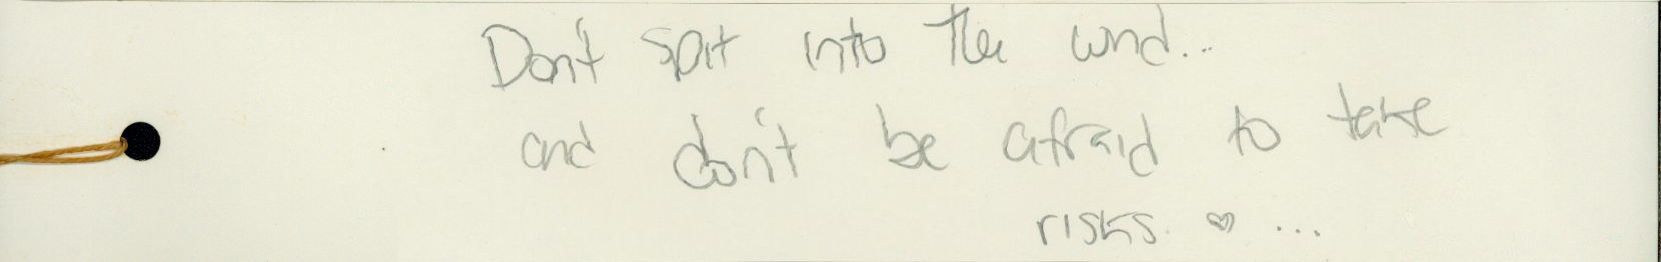 Don't spit into the wind...
and don't be afraid to take
risks ♡ ...